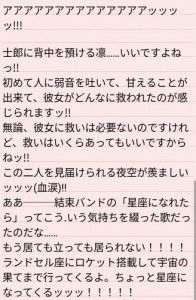 アアアアアアアアアアアアアアッッッ
ッ!!!
士郎に背中を預ける凛……いいですよね
っ!!
初めて人に弱音を吐いて、甘えることが
出来て、彼女がどんなに救われたのが感
じられますッ!!
無論、彼女に救いは必要ないのですけれ
ど、救いはいくらあってもいいですから
ねッ!!
この二人を見届けられる夜空が羨ましい
ッッッ(血涙)!!
ああ━━━結束バンドの「星座になれた
ら」ってこう.いう気持ちを綴った歌だっ
たのだな……
もう居ても立っても居られない！！！！
ランドセル座にロケット搭載して宇宙の
果てまで行ってくるよ。ちょっと星座に
なってくるッッッ！！！！！